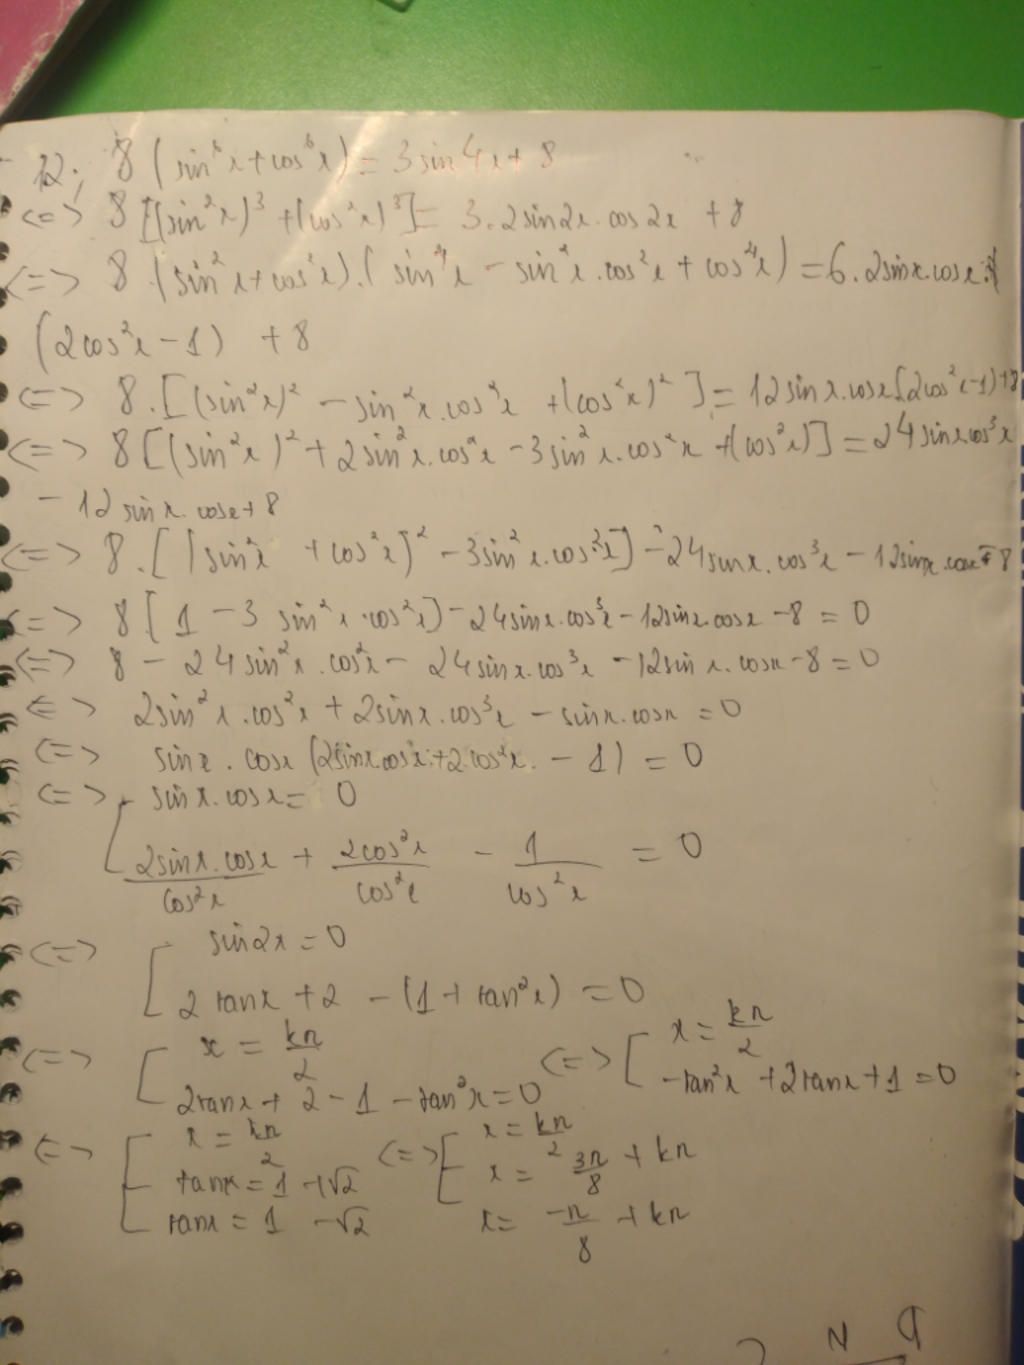 12; 8 (sin⁶x + cos⁶x) = 3 sin4x + 8
<=> 8 [(sin²x)³ + (cos²x)³] = 3.2sin2x.cos2x + 8
<=> 8 (sin²x + cos²x).(sin⁴x - sin²x.cos²x + cos⁴x) = 6.2sinx.cosx.
(2cos²x - 1) + 8
<=> 8.[(sin²x)² - sin²x.cos²x + (cos²x)²] = 12sinx.cosx(2cos²x-1)+8
<=> 8[(sin²x)² + 2sin²x.cos²x - 3sin²x.cos²x + (cos²x)] = 24sinxcos³x
- 12sinx.cosx+8
<=> 8.[(sin²x + cos²x)² - 3sin²x.cos²x] - 24sinx.cos³x - 12sinx.cosx 8
<=> 8[1 - 3 sin²x.cos²x] - 24sinx.cos³x - 12sinx.cosx - 8 = 0
<=> 8 - 24sin²x.cos²x - 24sinx.cos³x - 12sinx.cosx - 8 = 0
<=> 2sin²x.cos²x + 2sinx.cos³x - sinx.cosx = 0
<=> sinx.cosx (2sinx.cosx + 2.cos²x. - 1) = 0
<=> [ sinx.cosx = 0
2sinx.cosx/cos²x + 2cos²x/cos²x - 1/cos²x = 0
<=> [ sin2x = 0
2tanx + 2 - (1 + tan²x) = 0
<=> [ x = kπ/2 <=> [ x = kπ/2
2tanx + 2 - 1 - tan²x = 0 -tan²x + 2tanx + 1 = 0
<=> [ x = kπ/2 <=> [ x = kπ/2
tanx = 1 + √2 x = 3π/8 + kπ
tanx = 1 - √2 x = -π/8 + kπ